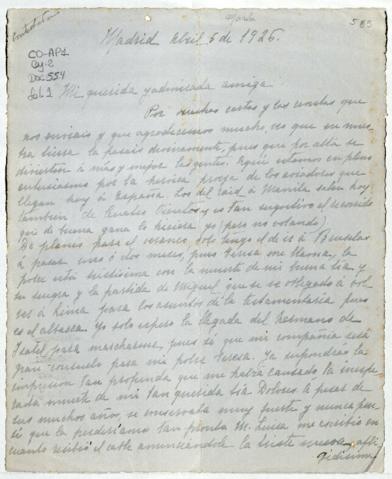 Contestada
María
583
Madrid Abril 5 de 1926.
CO-AP1
Cj-2
Doc 554
fol. 1
Mi querida y admirada amiga
Por muchas cartas y las revistas que
nos enviais y que agradecemos mucho, veo que en nuestra
tierra lo pasais divinamente, pues que por alla se
divierten á más y mejor las gentes. Aquí estamos en pleno
entusiasmo por la heroica proeza de los aviadores que
llegan hoy á España. Los del raid á Manila salen hoy
tambien de Cuatro Vientos y es tan sugestivo el recorrido
que de buena gana lo hiciera yo (pero no volando)
De planes para el verano, solo tengo el de ir á Bruselas
á pasar uno ó dos meses, pues Teresa me llama, la
pobre está tristísima con la muerte de mi buena tia, y
su suegra y la partida de Miguel que se ve obligado á volver
á Lima para los asuntos de la testamentaria pues
es el albacea. Yo solo espero la llegada del hermano de
Isabel para marcharme, pues sé que mi compañia será
gran consuelo para mi pobre Teresa. Ya supondrás la
impresion tan profunda que me habrá causado la inesperada
muerte de mi tan querida tia Dolores á pesar de
sus muchos años, se conservaba muy fuerte y nunca pensé
que la perderiamos tan pronto. M. Luisa me escribió en
cuanto recibió el cable anunciándole la triste nueva, afligidísima